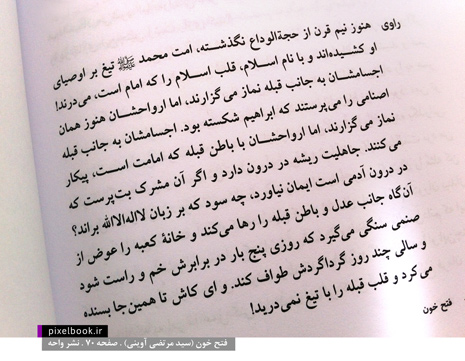 راوی
هنوز نیم قرن از حجةالوداع نگذشته، امت محمد ﷺ تیغ بر اوصیای
او کشیده‌اند و با نام اسلام، قلب اسلام را که امام است، می‌درند!
اجسامشان به جانب قبله نماز می‌گزارند، اما ارواحشان هنوز همان
اصنامی را می‌پرستند که ابراهیم شکسته بود. اجسامشان به جانب قبله
نماز می‌گزارند، اما ارواحشان با باطن قبله که امامت است، پیکار
می‌کنند. جاهلیت ریشه در درون دارد و اگر آن مشرک بت‌پرست که
در درون آدمی است ایمان نیاورد، چه سود که بر زبان لااله‌الاالله براند؟
آن‌گاه جانب عدل و باطن قبله را رها می‌کند و خانهٔ کعبه را عوض از
صنمی سنگی می‌گیرد که روزی پنج بار در برابرش خم و راست شود
و سالی چند روز گرداگردش طواف کند. و ای کاش تا همین‌جا بسنده
می‌کرد و قلب قبله را با تیغ نمی‌درید!
فتح خون
pixelbook.ir
فتح خون (سید مرتضی آوینی) . صفحه ۷۰ . نشر واحه